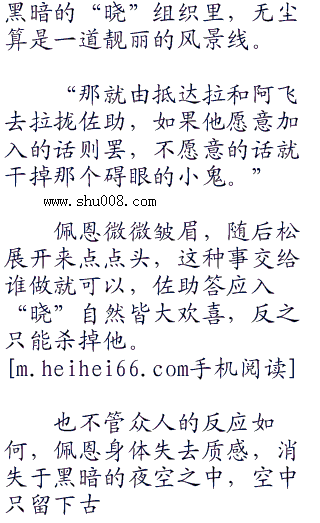 黑暗的“晓”组织里，无尘
算是一道靓丽的风景线。
“那就由抵达拉和阿飞
去拉拢佐助，如果他愿意加
入的话则罢，不愿意的话就
干掉那个碍眼的小鬼。”
www.shu008.com
佩恩微微皱眉，随后松
展开来点点头，这种事交给
谁做就可以，佐助答应入
“晓”自然皆大欢喜，反之
只能杀掉他。
[m.heihei66.com手机阅读]
也不管众人的反应如
何，佩恩身体失去质感，消
失于黑暗的夜空之中，空中
只留下古